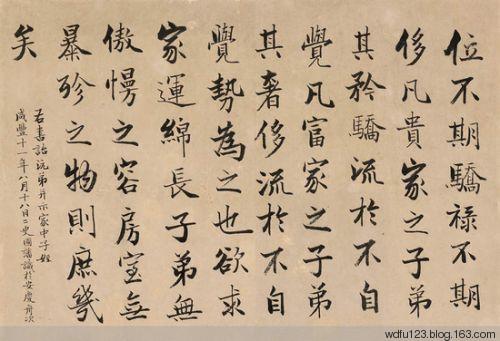 位不期驕祿不期
侈凡貴家之子弟
其矜驕流於不自
覺凡富家之子弟
其奢侈流於不自
覺勢為之也欲求
家運綿長子弟無
傲慢之容房室無
暴殄之物則庶幾
矣
右書詒沅弟并示家中子姪
咸豐十一年八月十八日二更國藩識於安慶舟次
wdfu123.blog.163.com